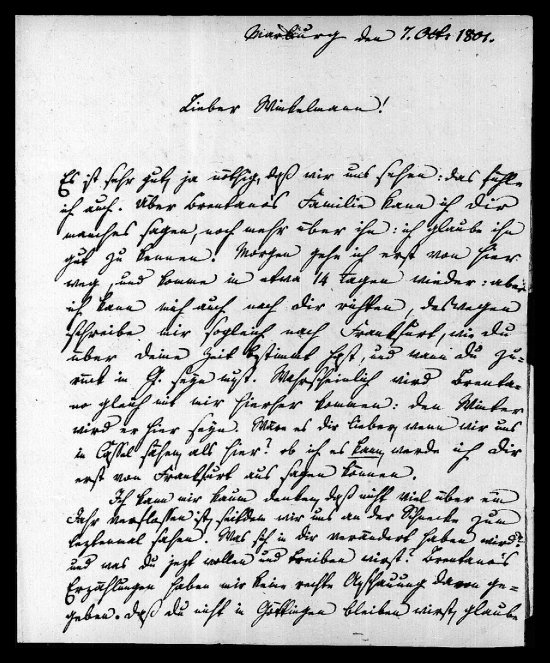 Marburg den 7. Octr 1801.
Lieber Winkelmann!
Es ist sehr gut, ja nöthig, daß wir uns sehen: das fühle
ich auch. Über Brentanos Familie kann ich dir
manches sagen, noch mehr über ihn: ich glaube ihn
gut zu kennen. Morgen gehe ich erst von hier
weg, und komme in etwa 14 tagen wieder: aber
ich kann mich auch nach dir richten, deswegen
schreibe mir sogleich nach Frankfurt, wie du
über deine Zeit bestimmt hast, und wann du zu-
rück in G. seyn mußt. Wahrscheinlich wird Brenta-
no gleich mit mir hierher kommen: den Winter
wird er hier seyn. Wäre es dir lieber, wenn wir uns
in Cassel sähen, als hier? ob ich es kann, werde ich dir
erst von Frankfurt aus sagen können.
Ich kann mir kaum denken, daß nicht viel über ein
Jahr verflossen ist, seitdem wir uns an der Schnecke zum
leztenmal sahen. Was sich in dir verändert haben wird?
und was du jezt wollen und treiben wirst? Brentanos
Erzählungen haben mir keine rechte Anschauung davon ge-
geben. Daß du nicht in Göttingen bleiben wirst, glaube